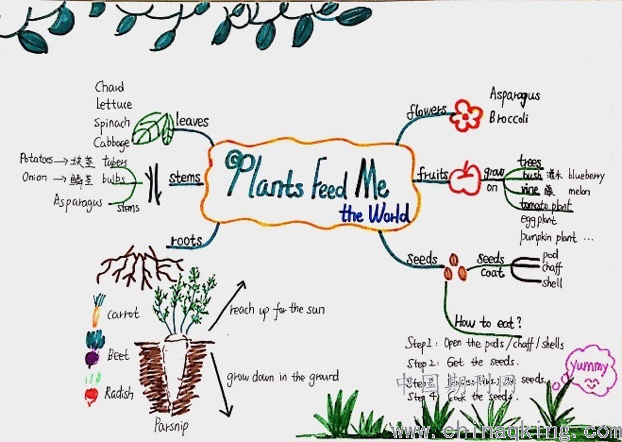 Plants Feed Me
the World
leaves
Chard
lettuce
Spinach
Cabbage
stems
Potatoes → 块茎 tubers
Onion → 鳞茎 bulbs
Asparagus stems
roots
Carrot
Beet
Radish
Parsnip
reach up for the sun
grow down in the ground
flowers
Asparagus
Broccoli
fruits
grow
on
trees
bush 灌木 blueberry
vine 藤 melon
tomato plant
eggplant
pumpkin plant ...
seeds
seeds
coat
pod
chaff
shell
How to eat?
Step1: Open the pods/chaff/shells
Step 2: Get the seeds.
Step 3: seeds
Step 4: Cook the seeds.
yummy
中国期刊网
www.chinaqking.com